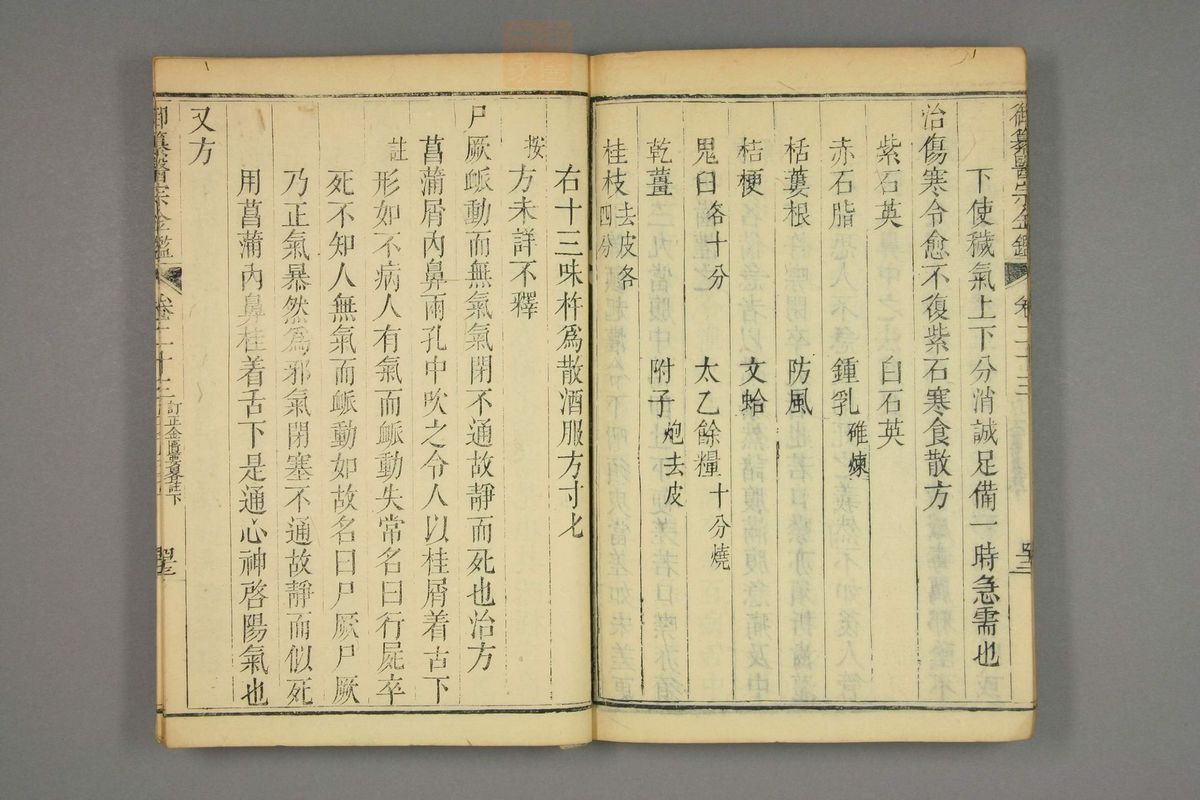 御纂醫宗金鑑 卷二十三
下使穢氣上下分消誠足備一時急需也
治傷寒令愈不復紫石寒食散方
紫石英 白石英
赤石脂 鍾乳碓煉
栝蔞根 防風
桔梗 文蛤
鬼臼各十分 太乙餘糧十分燒
乾薑 附子炮去皮
桂枝去皮各四分
右十三味杵爲散酒服方寸匕
按 方未詳不釋
尸厥脈動而無氣氣閉不通故靜而死也治方
菖蒲屑內鼻兩孔中吹之令人以桂屑着舌下
註 形如不病人有氣而脈動失常名曰行屍卒
死不知人無氣而脈動如故名曰尸厥尸厥
乃正氣暴然爲邪氣閉塞不通故靜而似死
用菖蒲內鼻桂着舌下是通心神啓陽氣也
又方
御纂醫宗金鑑 卷二十三 訂正金匱要畧註下